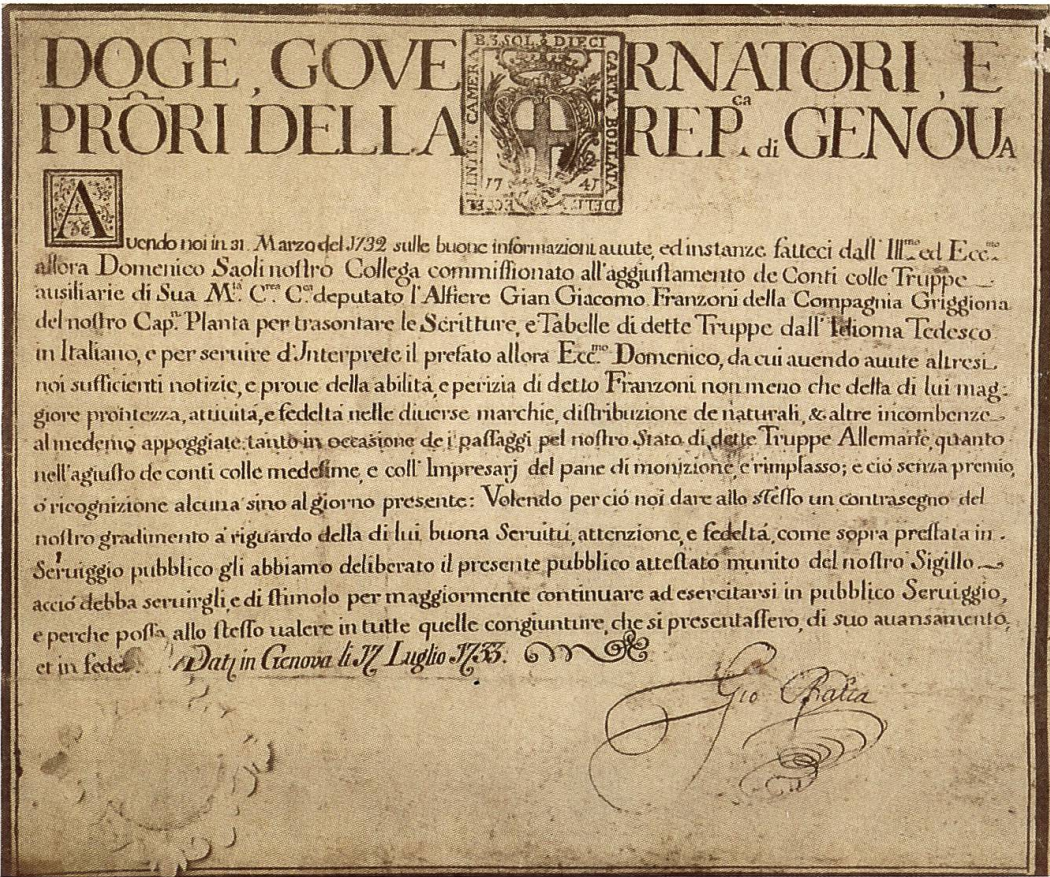 DOGE, GOVERNATORI, E
PRŌRI DELLA REP.ca di GENOUA
B. 3. SOL. DIECI
CARTA BOLLATA
DELL' ECCEL
LENTIS. CAMERA
17 41
Auendo noi in 31. Marzo del 1732 sulle buone informazioni auute, ed instanze fatteci dall' Ill.mo ed Ecc.mo
allora Domenico Saoli nostro Collega commissionato all'aggiustamento de Conti colle Truppe
ausiliarie di Sua M.tà C.rea C.ca deputato l'Alfiere Gian Giacomo Franzoni della Compagnia Griggiona
del nostro Cap.n Planta per trasontare le Scritture, e Tabelle di dette Truppe dall' Idioma Tedesco
in Italiano, e per seruire d'Interprete il prefato allora Ecc.mo Domenico, da cui auendo auute altresi
noi sufficienti notizie, e proue della abilità, e perizia di detto Franzoni non meno che della di lui mag:
giore prontezza, attiuità, e fedeltà nelle diuerse marchie, distribuzione de naturali, & altre incombenze
al medemo appoggiate tanto in occasione de i passaggi pel nostro Stato di dette Truppe Allemane, quanto
nell'agiusto de conti colle medesime, e coll' Impresarj del pane di monizione, e rimplasso; e ciò senza premio,
ò ricognizione alcuna sino al giorno presente: Volendo perciò noi dare allo stesso un contrasegno del
nostro gradimento a' riguardo della di lui buona Seruitù, attenzione, e fedeltà, come sopra prestata in
Seruiggio pubblico gli abbiamo deliberato il presente pubblico attestato munito del nostro Sigillo
acciò debba seruirgli, e di stimolo per maggiormente continuare ad esercitarsi in pubblico Seruiggio,
e perche possa allo stesso ualere in tutte quelle congiunture, che si presentassero, di suo auansamento,
et in fede. Dat. in Genova li 17 Luglio 1733.
Gio